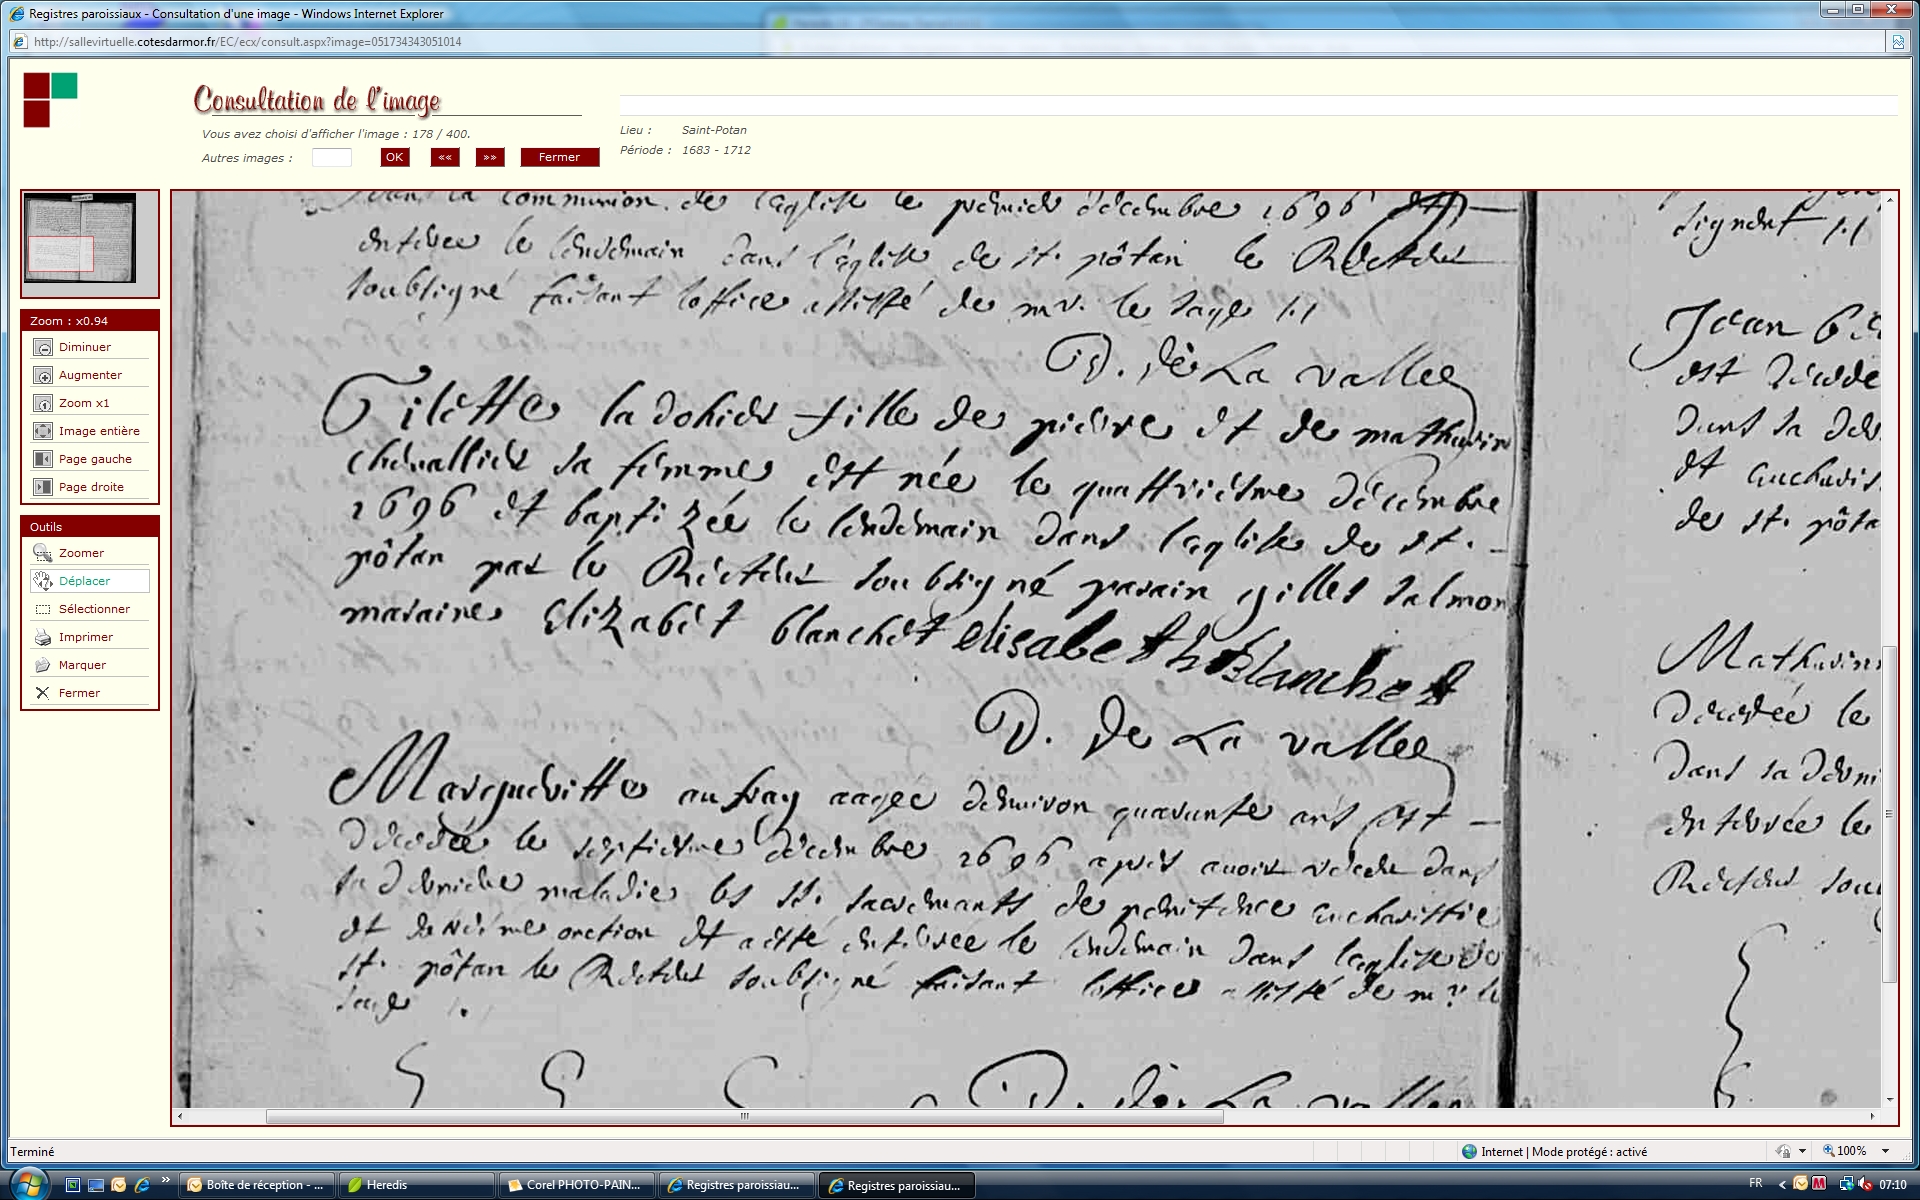 Registres paroissiaux - Consultation d'une image - Windows Internet Explorer
http://sallevirtuelle.cotesdarmor.fr/EC/ecx/consult.aspx?image=051734343051014
Consultation de l'image
Vous avez choisi d'afficher l'image : 178 / 400.
Autres images :
OK
««
»»
Fermer
Lieu : Saint-Potan
Période : 1683 - 1712
Zoom : x0.94
Diminuer
Augmenter
Zoom x1
Image entière
Page gauche
Page droite
Outils
Zoomer
Déplacer
Sélectionner
Imprimer
Marquer
Fermer
dans la communion de l'aglise le premier decembre 1696
enterée le lendemain dans l'église de st. pôtan le Recteur
soubsigné faisant loffice assisté de mr. le sage
D. de La vallee
Gilette fille de pierre et de mathurine
chevallier sa femme est née le quattriesme décembre
1696 et baptizée le lendemain dans laglise de st.
pôtan par le Recteur soubsigné parain gilles salmon
maraine Elizabet blanchet elisabeth blanchet
D. de La vallee
Margueritte aufray aagée denviron quarante ans est
décédée le septiesme décembre 1696 apres avoir receu dans
sa derniere maladie les st. sacremants de penitence eucharistie
et et a esté enterée le lendemain dans laglise de
st. pôtan le Recteur soubsigné faisant loffice assisté de mr le
sage
D. de La vallee
signent
Jean
est décédé
dans sa der
et eucharis
de st. pôta
Mathurine
décédée le
dans sa derni
enterrée le
Recteur sou
Terminé
Internet | Mode protégé : activé
100%
Boîte de réception - ...
Heredis
Corel PHOTO-PAIN...
Registres paroissiau...
Registres paroissiau...
FR
07:10